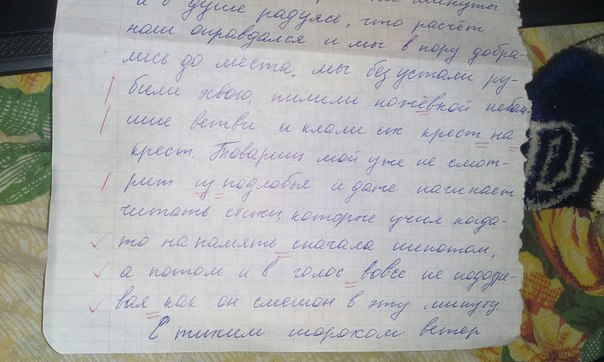 минуты
и в душе радуясь, что расчёт
наш оправдался и мы в пору добра-
лись до места, мы без устали ру-
били хвою, пилили ножёвкой неболь-
шие ветви и клали их крест на
крест. Товарищ мой уже не смот-
рит из подлобья и даже начинает
читать стихи, которые учил когда-
то на память сначала шепотом,
а потом и в голос вовсе не подозре-
вая как он смешон в эту минуту.
С тихим шорохом ветер